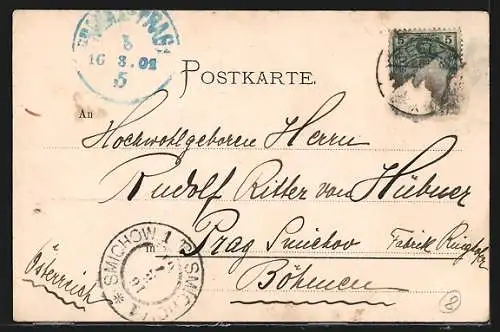 16.3.01
5
5 5
POSTKARTE.
An
Hochwohlgeboren Herrn
Rudolf Ritter von Hübner
Prag Smichov Fabrik
Böhmen
Österreich
SMICHOW 1
SMICHOV 1
2